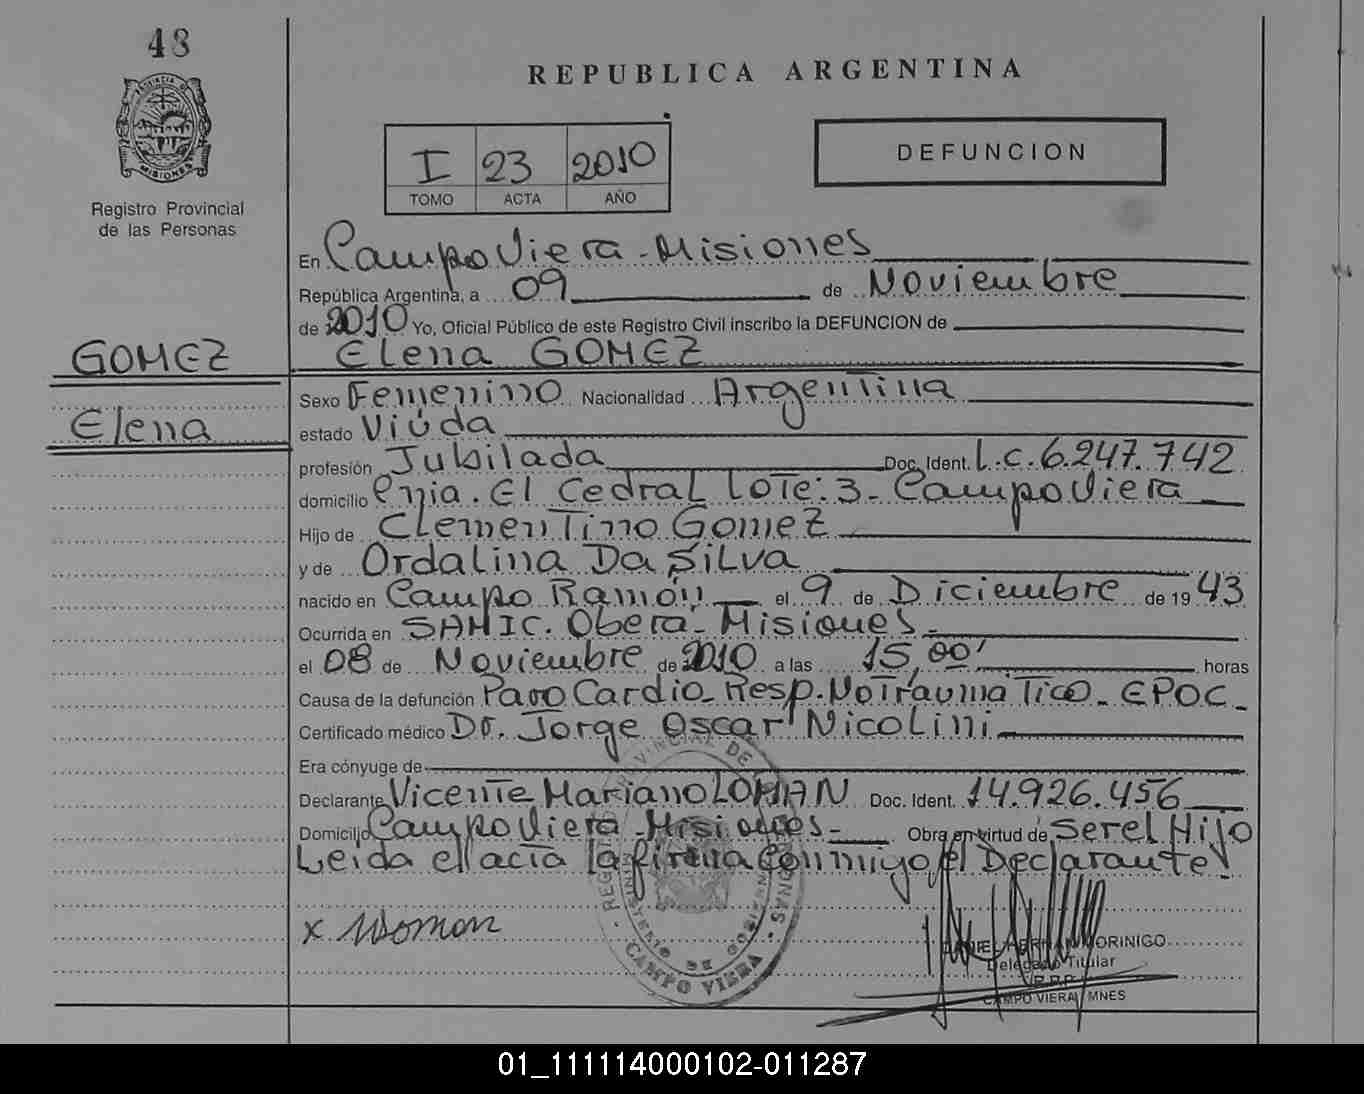 48
PROVINCIA DE
MISIONES
Registro Provincial
de las Personas
REPUBLICA ARGENTINA
I 23 2010
TOMO ACTA AÑO
DEFUNCION
En Campo Viera - Misiones
República Argentina, a 09 de Noviembre
de 2010 Yo, Oficial Público de este Registro Civil inscribo la DEFUNCION de
GOMEZ
Elena GOMEZ
Elena
Sexo Femenino Nacionalidad Argentina
estado Viúda
profesión Jubilada Doc. Ident. L.C. 6.247.742
domicilio Cnia. El Cedral Lote: 3 - Campo Viera
Hijo de Clementino Gomez
y de Ordalina Da Silva
nacido en Campo Ramón el 9 de Diciembre de 1943
Ocurrida en SAMIC. Oberá - Misiones -
el 08 de Noviembre de 2010 a las 15,00' horas
Causa de la defunción Paro Cardio - Resp. No Traumatico - EPOC -
Certificado médico Dr. Jorge Oscar Nicolini
Era cónyuge de
Declarante Vicente Mariano LOMAN Doc. Ident. 14.926.456
Domicilio Campo Viera - Misiones - Obra en virtud de Ser el Hijo
Leida el acta la firma conmigo el Declarante
x
REGISTRO PROVINCIAL DE LAS PERSONAS
MINISTERIO DE GOBIERNO
CAMPO VIERA
DANIEL HERNAN MORINIGO
Delegado Titular
R.P.P.
CAMPO VIERA MNES
01_111114000102-011287